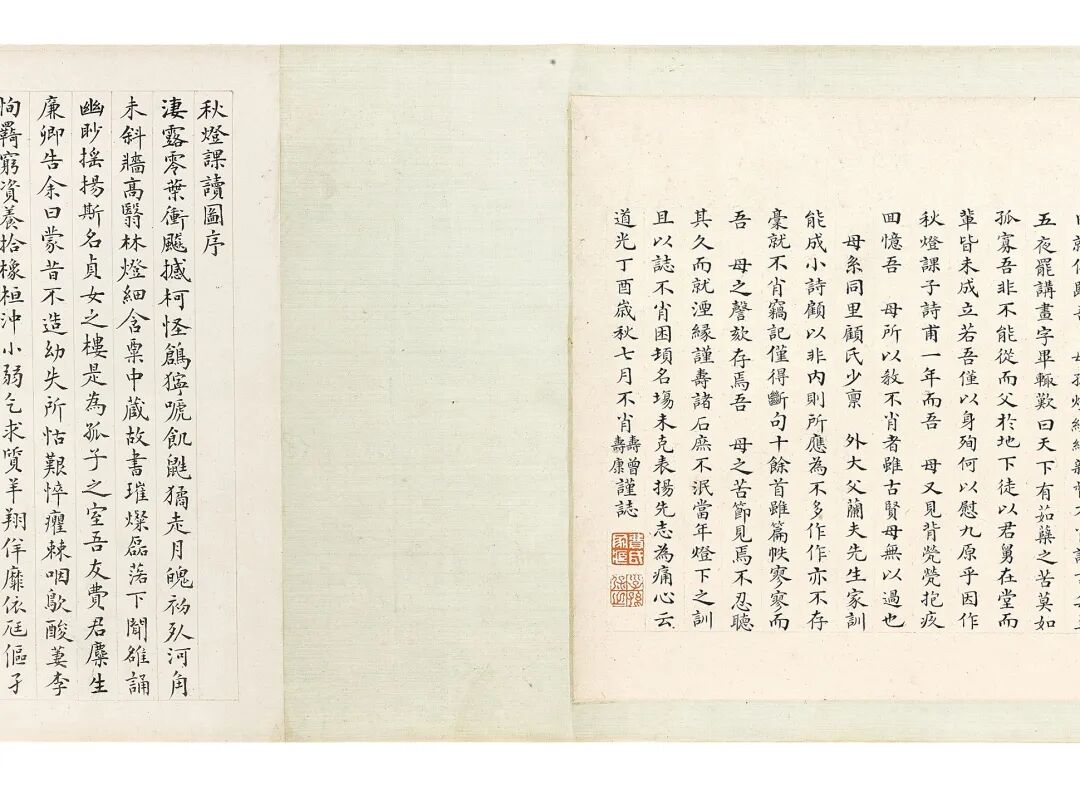 五夜罷講畫字畢輒歎曰天下有茹蘗之苦莫如
孤寡吾非不能從而父於地下徒以君舅在堂而
輩皆未成立若吾僅以身殉何以慰九原乎因作
秋燈課子詩甫一年而吾 母又見背煢煢抱疚
回憶吾 母所以教不肖者雖古賢母無以過也
母系同里顧氏少稟 外大父蘭夫先生家訓
能成小詩顧以非內則所應為不多作作亦不存
稾就不肖竊記僅得斷句十餘首雖篇帙寥寥而
吾 母之謦欬存焉吾 母之苦節見焉不忍聽
其久而就湮緣謹壽諸石庶不泯當年燈下之訓
且以誌不肖困頓名場未克表揚先志為痛心云
道光丁酉歲秋七月不肖壽曾壽康謹誌
秋燈課讀圖序
淒露零葉衝飈撼柯怪獰嘑飢鼪獝走月魄初河角
未斜牆高翳林燈細含粟中藏故書璀燦磊落下聞雒誦
幽眇搖揚斯名貞女之樓是為孤子之室吾友費君麋生
廉卿告余曰蒙昔不造幼失所怙艱悴癯棘咽歍酸萋李
恂羇窮資養拾橡桓沖小弱乞求質羊翔佯靡依尪傴孑